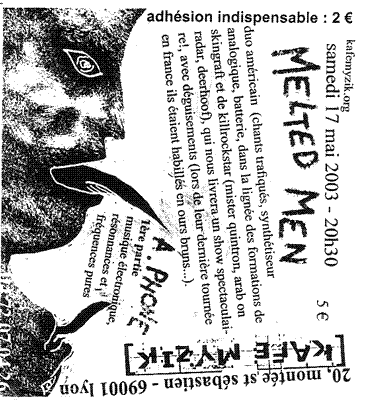 adhésion indispensable : 2 €
kafemyzik.org
samedi 17 mai 2003 - 20h30
5 €
MELTED MEN
duo américain (chants trafiqués, synthétiseur
analogique, batterie, dans la lignée des formations de
skingraft et de killrockstar (mister quintron, arab on
radar, deerhoof), qui nous livrera un show spectaculai-
re!, avec déguisements (lors de leur dernière tournée
en france ils étaient habillés en ours bruns...).
A. PHONE
1ère partie
musique électronique,
résonnances et
fréquences pures
[KAFE MYZIK]
20, montée st sébastien - 69001 lyon